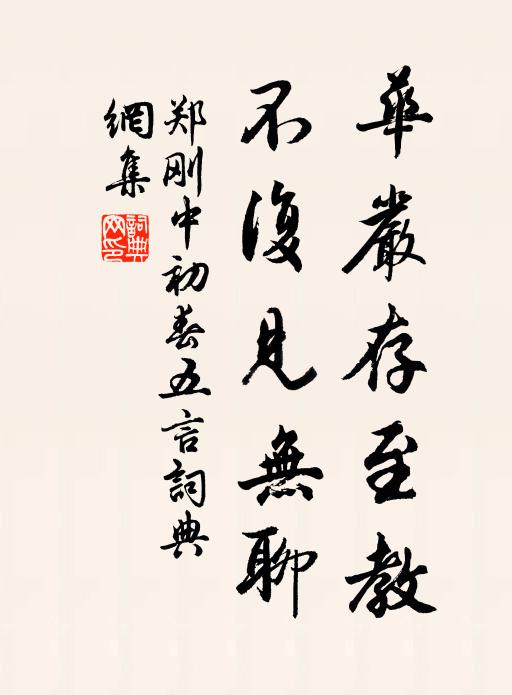 華嚴存至教
不復見無聊
郑刚中初春五言詞典
網集
詞典
网印